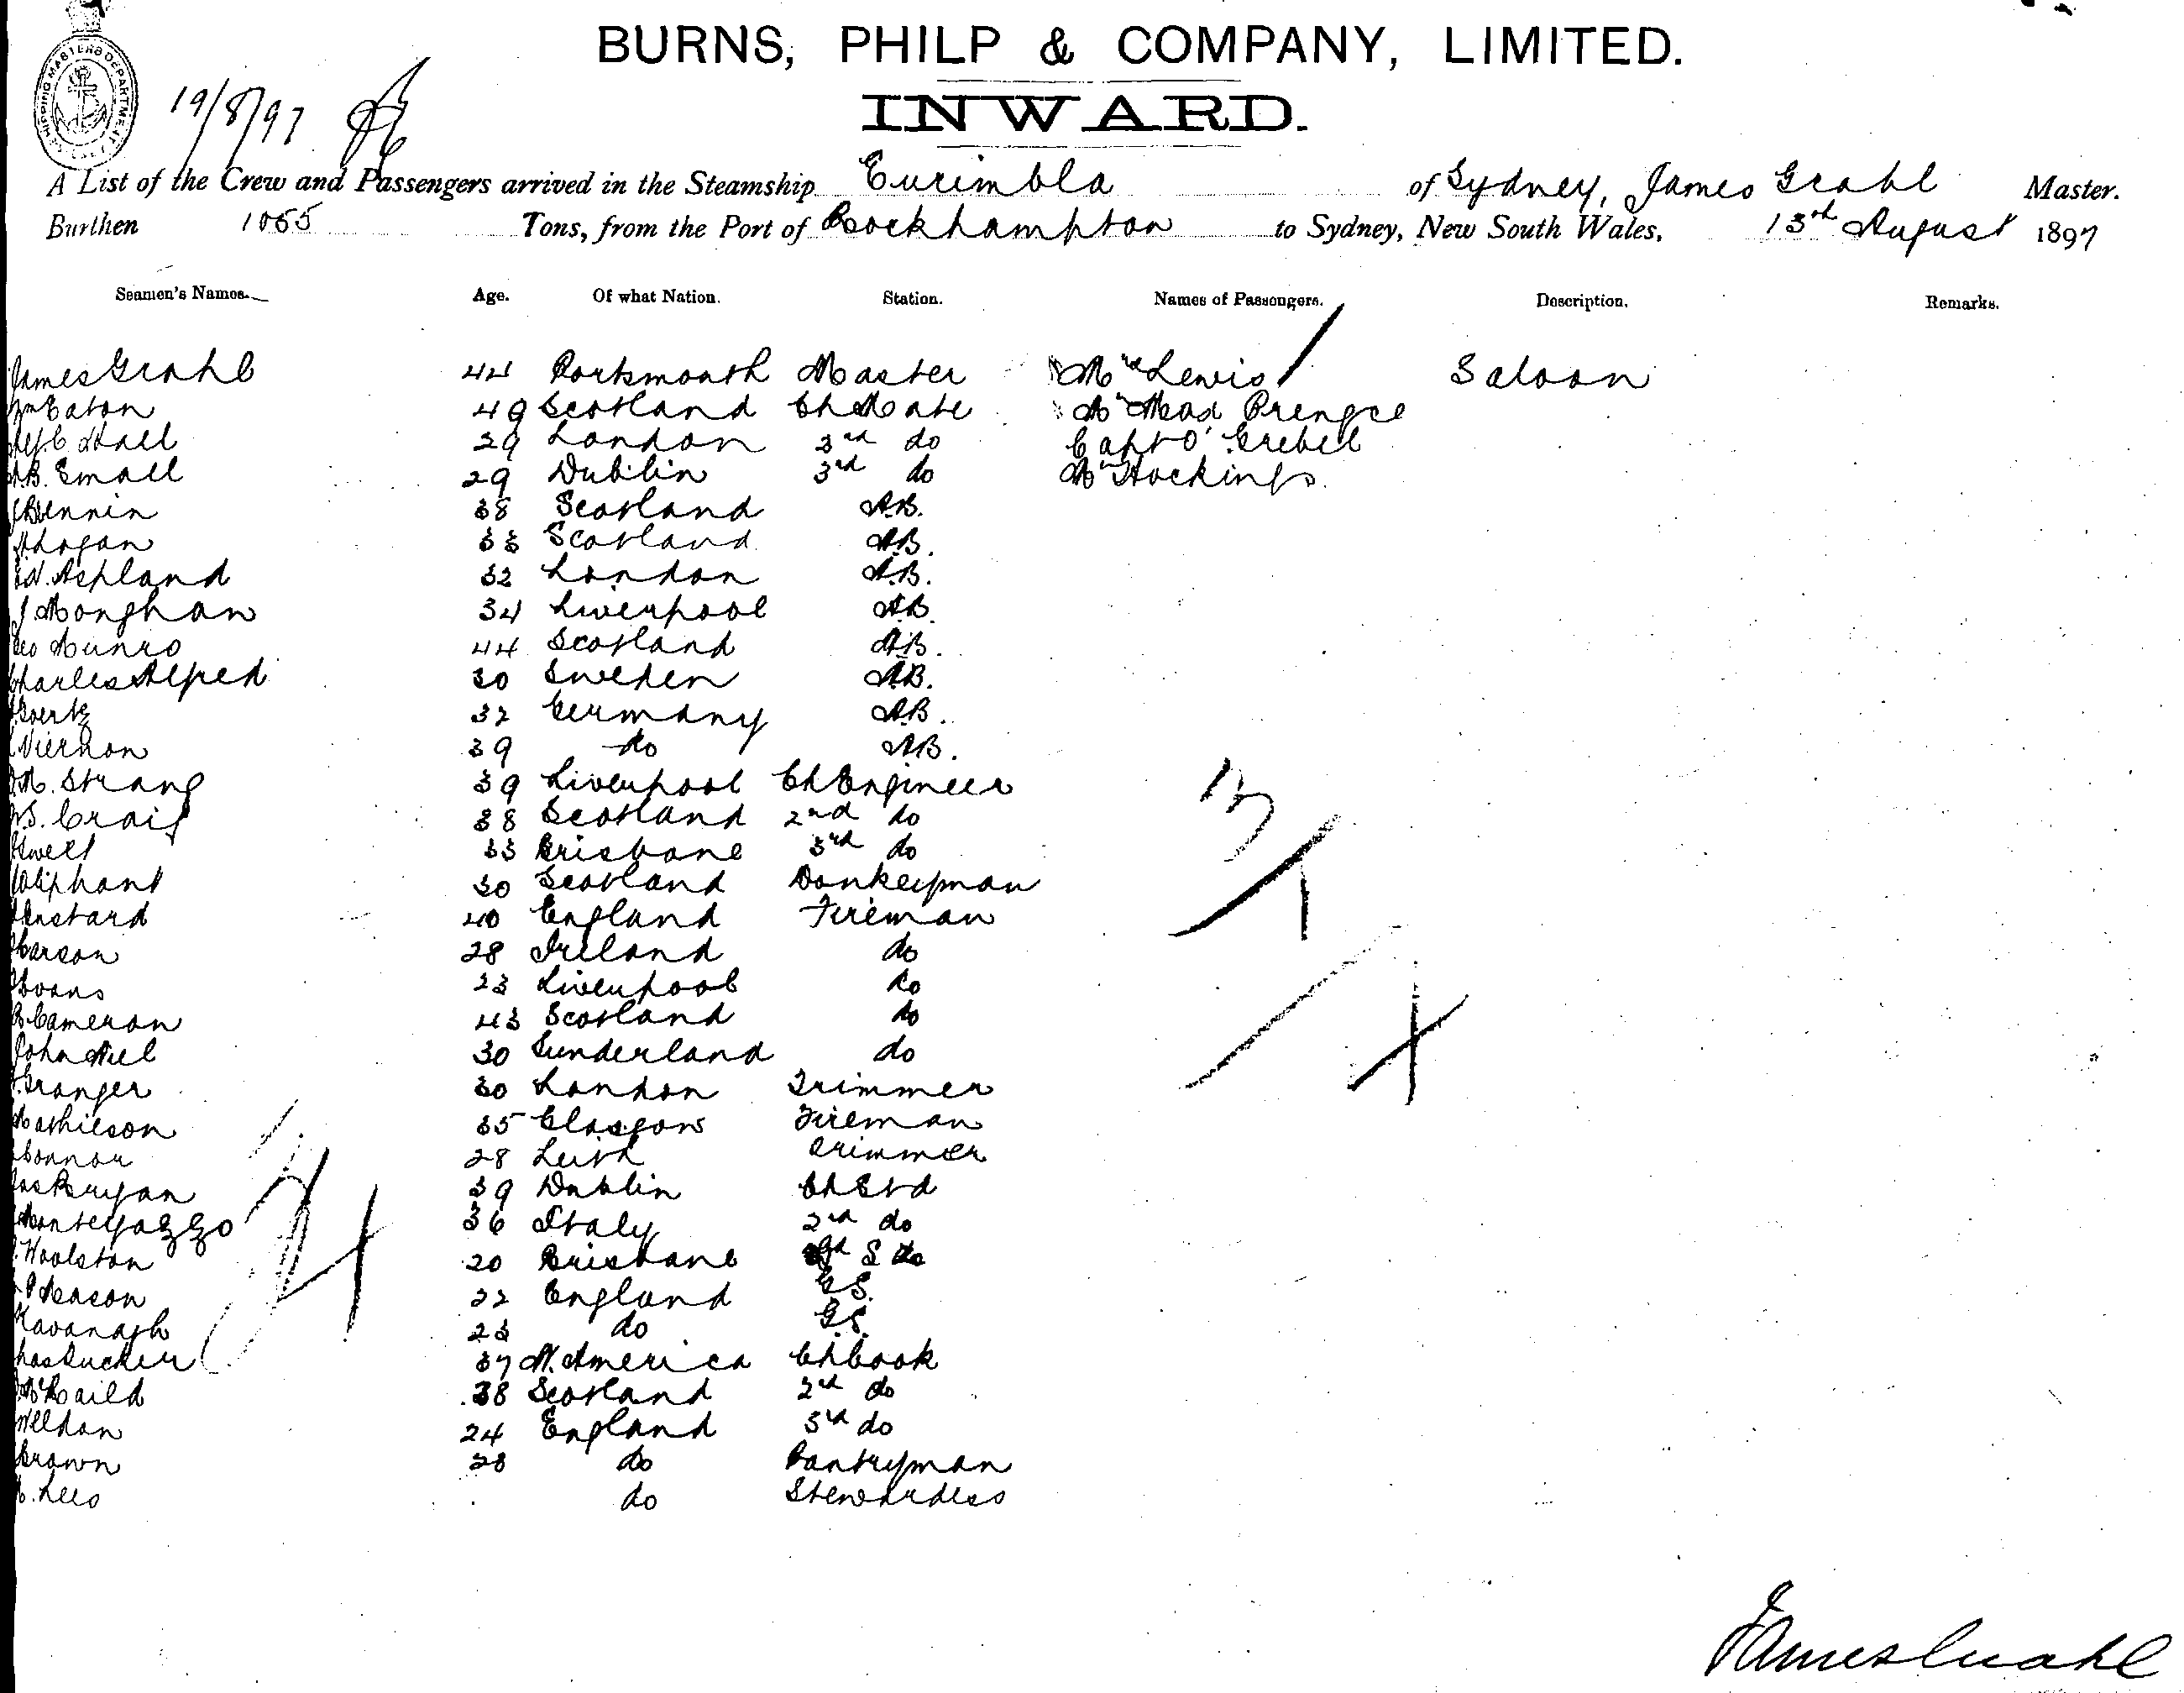 BURNS, PHILP & COMPANY, LIMITED.
INWARD.
SHIPPING MASTERS DEPARTMENT
19/8/97
A List of the Crew and Passengers arrived in the Steamship Eurimbla of Sydney, James Grahl Master.
Burthen 1055 Tons, from the Port of Rockhampton to Sydney, New South Wales, 13th August 1897
Seamen's Names. Age. Of what Nation. Station. Names of Passengers. Description. Remarks.
James Grahl 44 Portsmouth Master Mrs Lewis Saloon
Wm Eaton 49 Scotland Ch Mate Mr Mead
Hall 29 London 2nd do Capt
A.B. Small 29 Dublin 3rd do Mr Hockings
Bennin 38 Scotland A.B.
Logan 33 Scotland A.B.
Ed. Ashland 32 London A.B.
J Monghan 34 Liverpool A.B.
Geo Munro 44 Scotland A.B.
Charles Alfred 30 Sweden A.B.
Goertz 32 Germany A.B.
Viernon 39 do A.B.
M. Strang 39 Liverpool Ch Engineer
W.S. Craig 38 Scotland 2nd do
33 Brisbane 3rd do
Oliphant 30 Scotland Donkeyman
40 England Fireman
Carson 28 Ireland do
Evans 23 Liverpool do
Cameron 43 Scotland do
John Neil 30 Sunderland do
Granger 30 London Trimmer
Mathieson 35 Glasgow Fireman
Connor 28 Leith Trimmer
Jas Bryan 39 Dublin Ch Std
Montegazzo 36 Italy 2nd do
Woolston 20 Brisbane
Deacon 22 England G.S.
Kavanagh 23 do G.S.
Chas Tucker 37 N. America Ch Cook
McCaild 38 Scotland 2nd do
Weldon 24 England 3rd do
Brown 28 do Pantryman
Lees do Stewardess
James Grahl